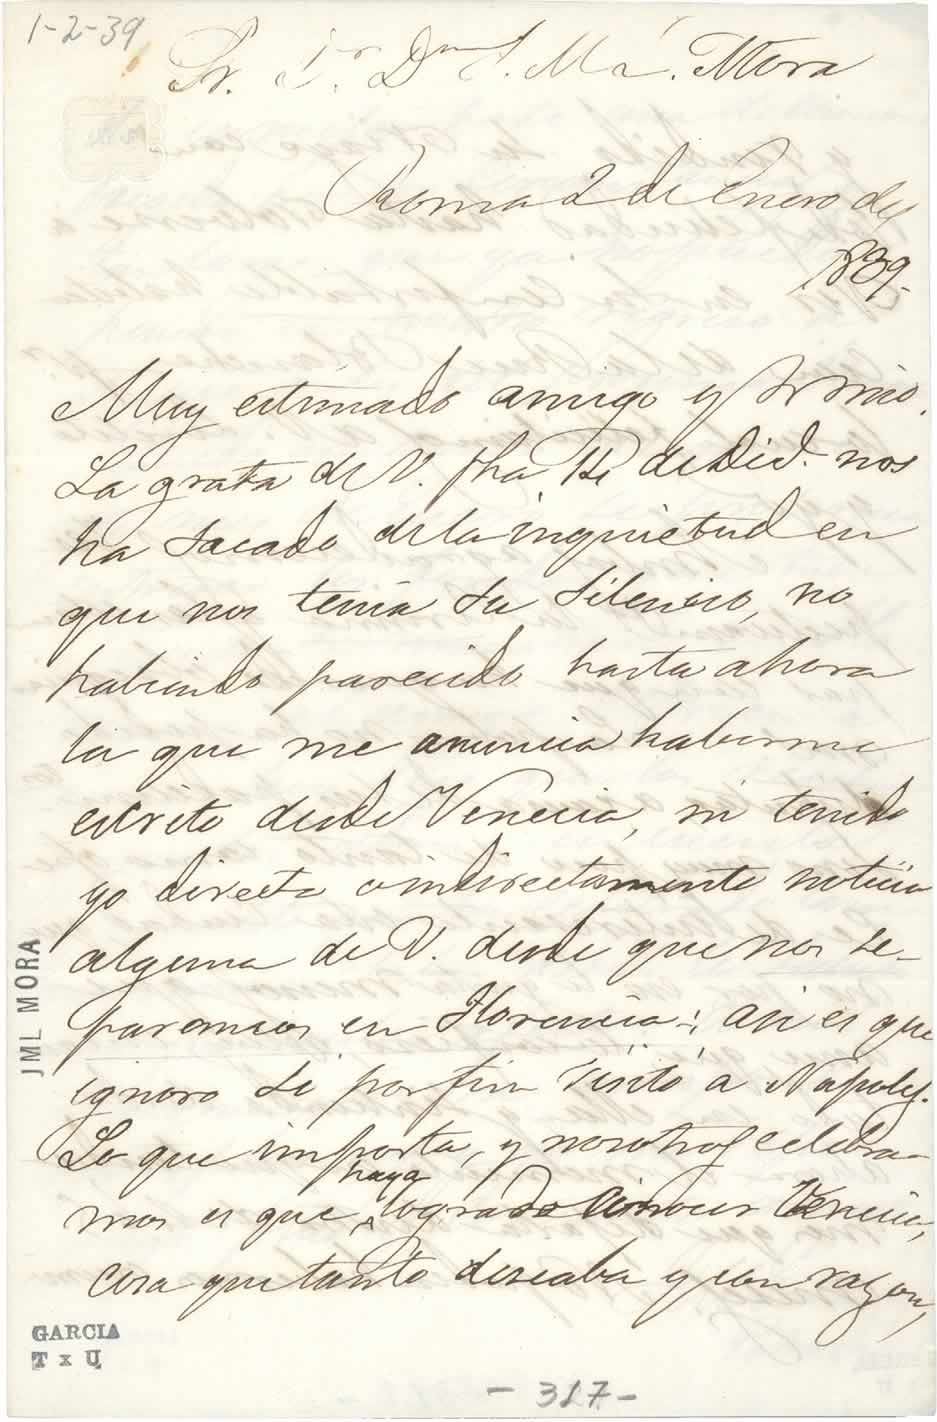 1-2-39
Sr. Dr. Dn J. Ma. Mora
Roma 2 de Enero de
1839.
Muy estimado amigo y Sr mio.
La grata de V. fha 14 de Dic. nos
ha sacado de la inquietud en
que nos tenia su silencio, no
habiendo parecido hasta ahora
la que me anuncia haberme
escrito desde Venecia, ni tenido
yo directa o indirectamente noticia
alguna de V. desde que nos se-
paramos en Florencia: asi es que
ignoro si por fin visitó a Napoles.
Lo que importa, y nosotros celebra-
mos es que haya logrado conocer Venecia,
cosa que tanto deseaba y con razon,
JML MORA
GARCIA
T x U
- 317 -